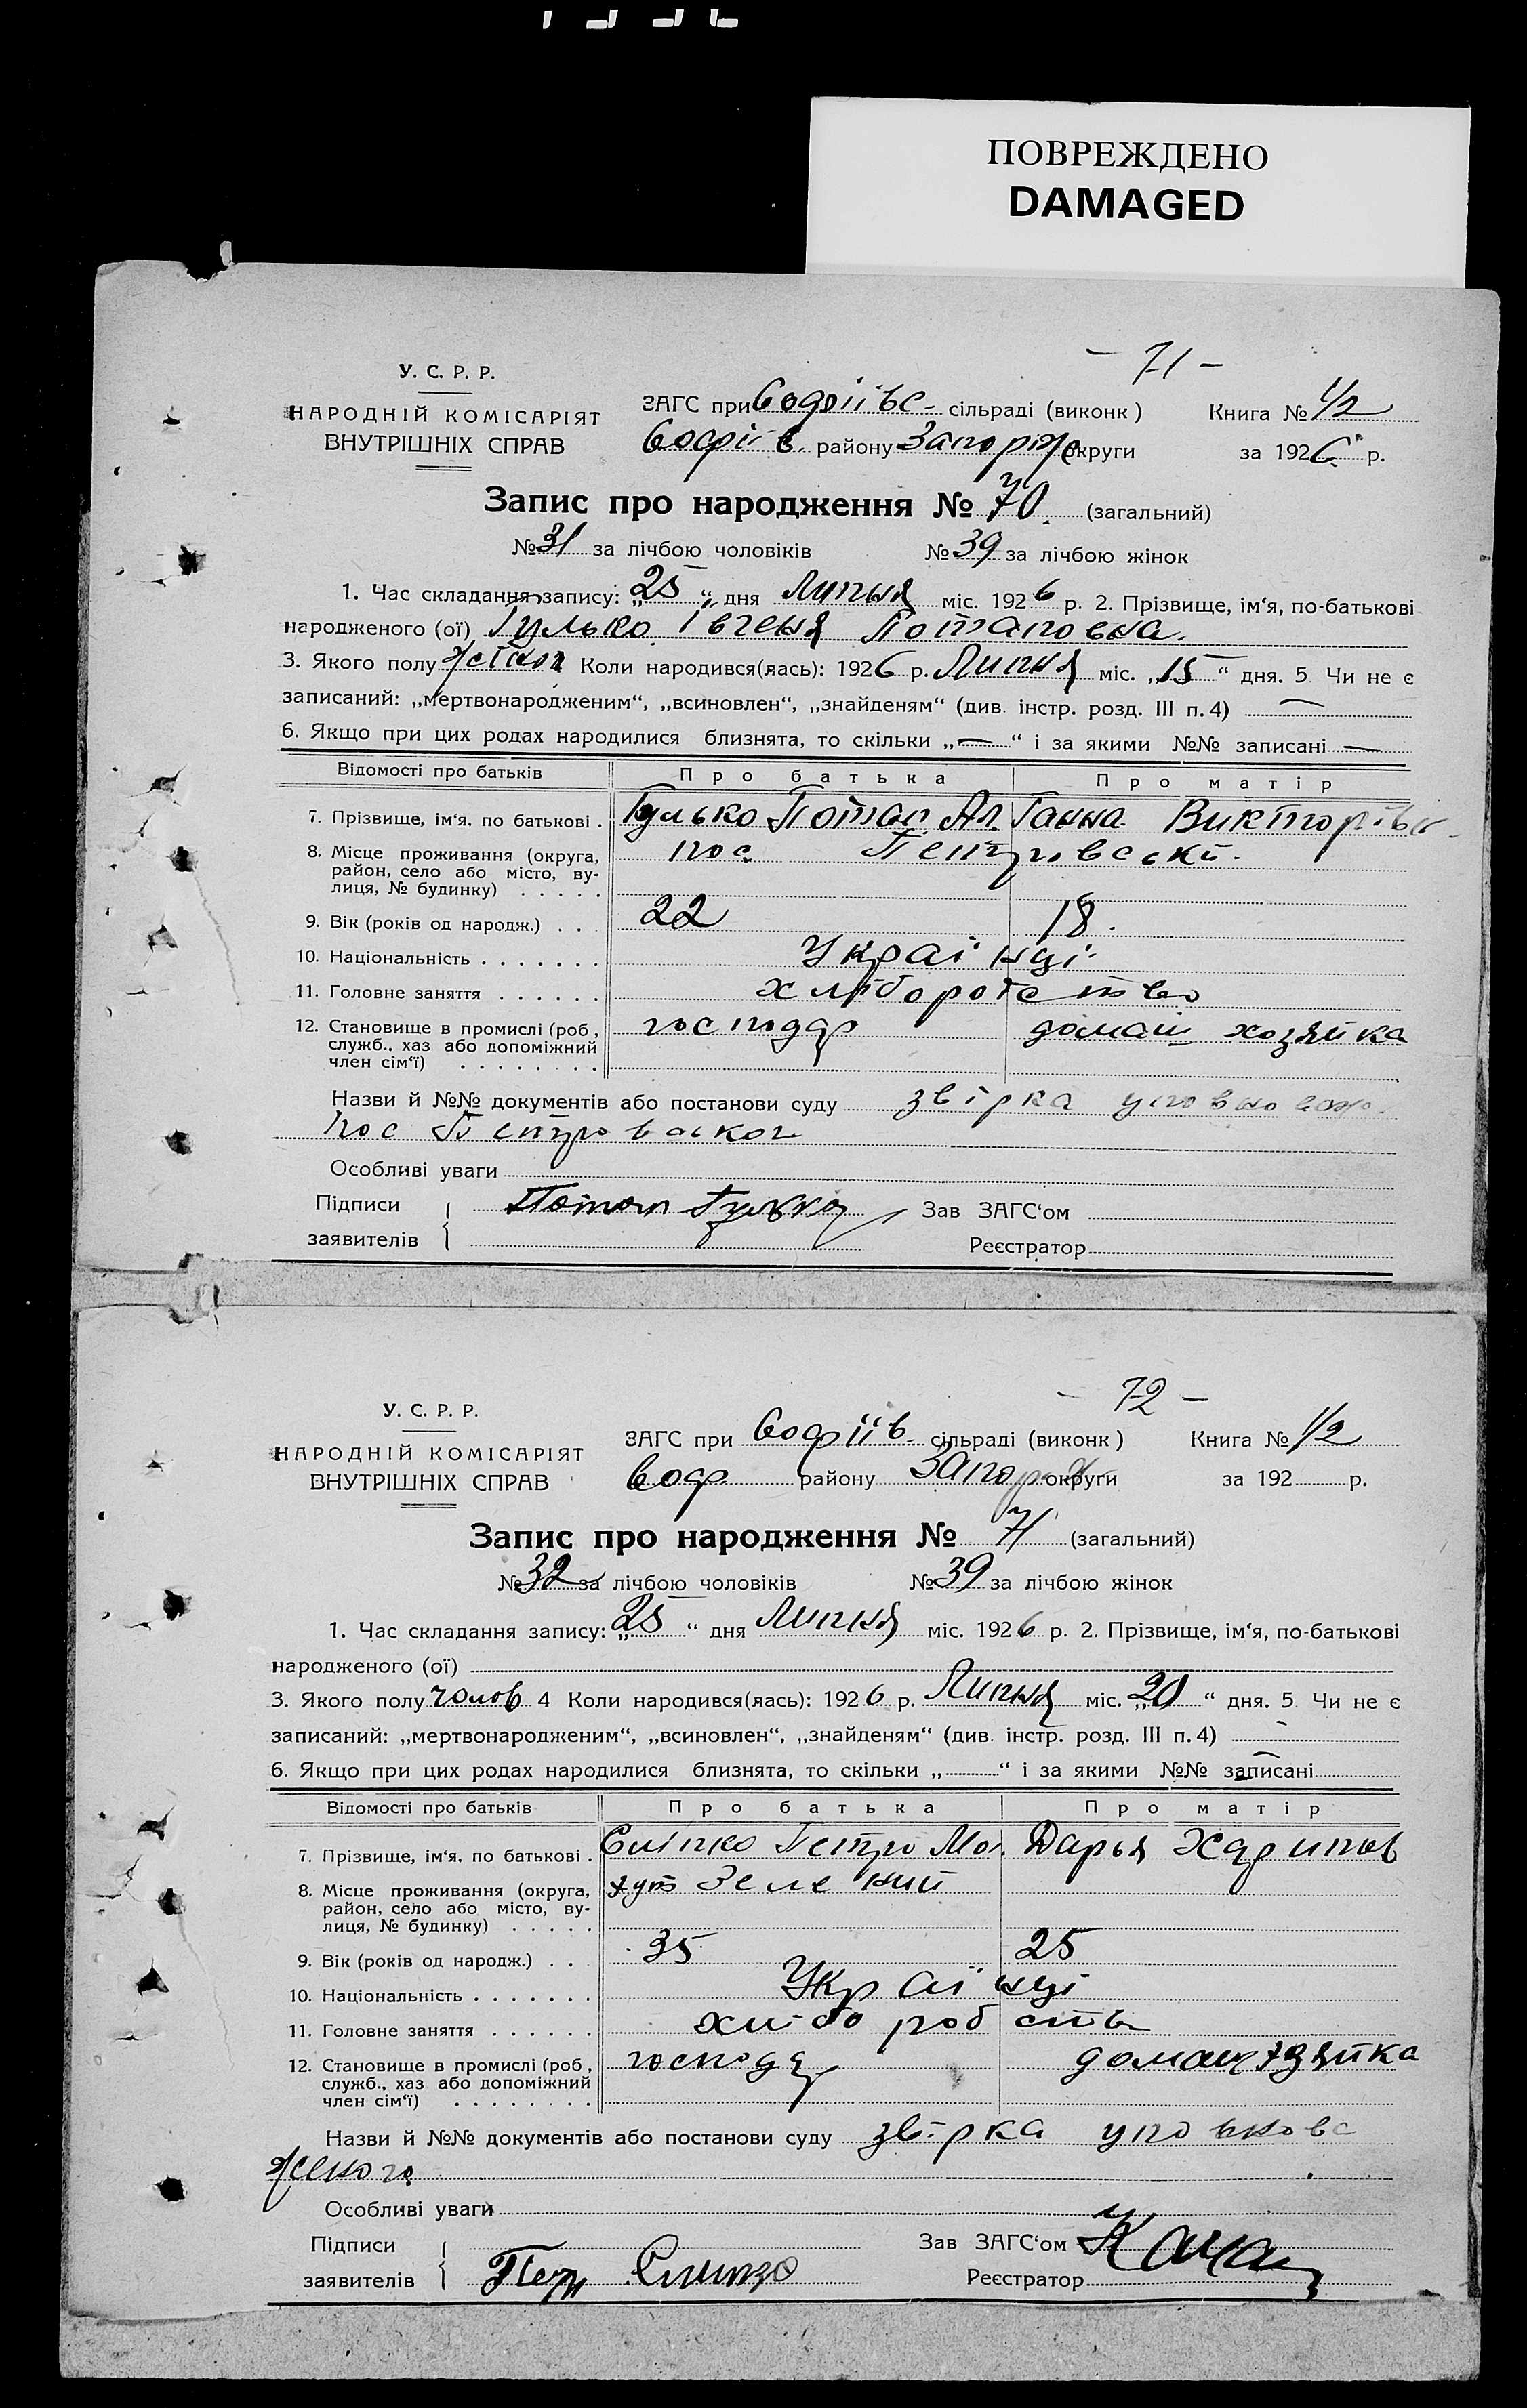 ПОВРЕЖДЕНО
DAMAGED
– 71 –
У. С. Р. Р.
НАРОДНІЙ КОМІСАРІЯТ
ВНУТРІШНІХ СПРАВ
ЗАГС при Софіївс. сільраді (виконк) Книга № 1/2
Софіїв. району Запоріж округи за 1926 р.
Запис про народження № 70. (загальний)
№ 31 за лічбою чоловіків № 39 за лічбою жінок
1. Час складання запису: „25“ дня Липня міс. 1926 р. 2. Прізвище, ім‘я, по-батькові
народженого (ої) Гулько Івгенія Потаповна.
3. Якого полу Коли народився(лась): 1926 р. Липня міс. „15“ дня. 5. Чи не є
записаний: „мертвонародженим“, „всиновлен“, „знайденям“ (див. інстр. розд. III п. 4) —
6. Якщо при цих родах народилися близнята, то скільки „—“ і за якими №№ записані —
Відомості про батьків Про батька Про матір
7. Прізвище, ім‘я. по батькові . Гулько Потап Ал. Ганна Викторівн
8. Місце проживання (округа, район, село або місто, вулиця, № будинку) . . . . . пос.
9. Вік (років од народж.) . . 22 18.
10. Національність . . . . . . . Українці
11. Головне заняття . . . . . . хліборобство
12. Становище в промислі (роб, служб., хаз або допоміжний член сім‘ї) . . . . . . . . господар домаш хозяйка
Назви й №№ документів або постанови суду звірка уповноваж.
пос Петровського
Особливі уваги
Підписи заявителів Потап Гулько Зав ЗАГС‘ом
Реєстратор
– 72 –
У. С. Р. Р.
НАРОДНІЙ КОМІСАРІЯТ
ВНУТРІШНІХ СПРАВ
ЗАГС при Софіїв. сільраді (виконк) Книга № 1/2
Соф. району Запоріж округи за 192 р.
Запис про народження № 71 (загальний)
№ 32 за лічбою чоловіків № 39 за лічбою жінок
1. Час складання запису: „25“ дня Липня міс. 1926 р. 2. Прізвище, ім‘я, по-батькові
народженого (ої)
3. Якого полу чолов 4 Коли народився(лась): 1926 р. Липня міс. „20“ дня. 5. Чи не є
записаний: „мертвонародженим“, „всиновлен“, „знайденям“ (див. інстр. розд. III п. 4) -
6. Якщо при цих родах народилися близнята, то скільки „ “ і за якими №№ записані
Відомості про батьків Про батька Про матір
7. Прізвище, ім‘я. по батькові . Сліпко Петро Дарья
8. Місце проживання (округа, район, село або місто, вулиця, № будинку) . . . . . хут Зелений
9. Вік (років од народж.) . . 35 25
10. Національність . . . . . . . Українці
11. Головне заняття . . . . . . хліборобств
12. Становище в промислі (роб, служб., хаз або допоміжний член сім‘ї) . . . . . . . . господар домаш хазяйка
Назви й №№ документів або постанови суду звірка уповнова
женого
Особливі уваги
Підписи заявителів Петр Зав ЗАГС‘ом
Реєстратор